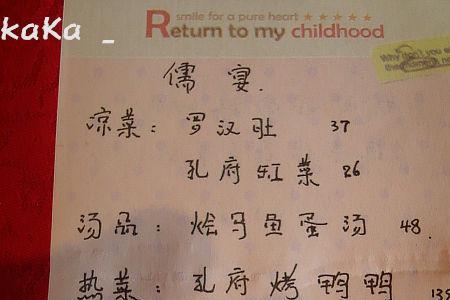 kaKa _
smile for a pure heart ★★★★★
Return to my childhood
Why don't you
儒宴.
凉菜：罗汉肚 37
孔府缸菜 26
汤品：烩乌鱼蛋汤 48.
热菜：孔府烤鸭鸭